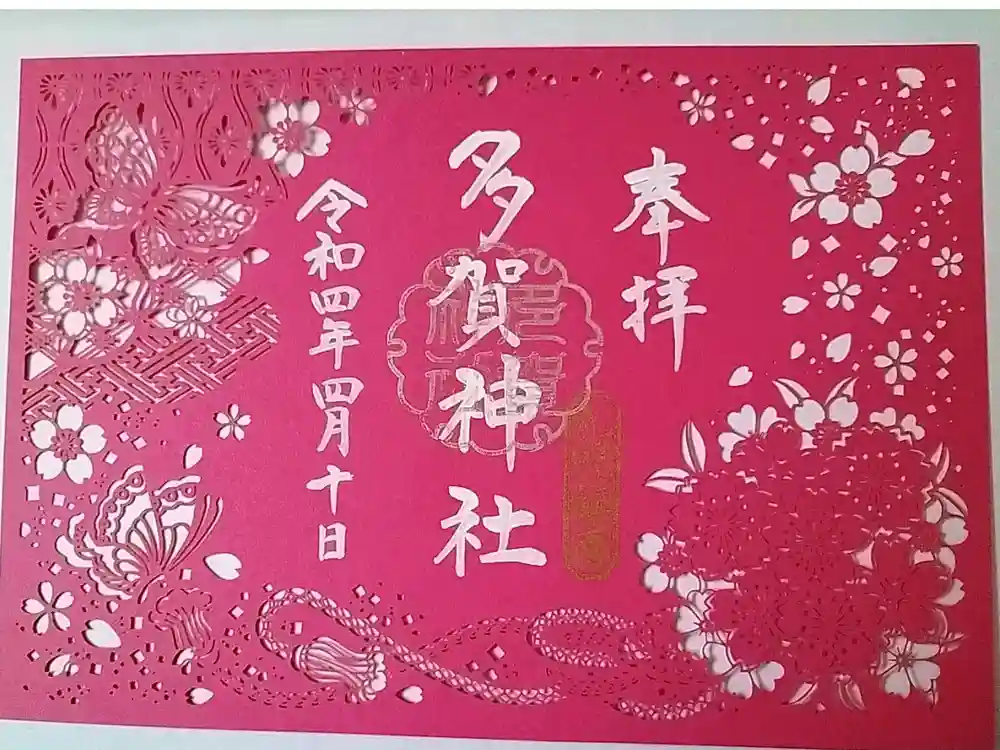 奉拝
多賀神社
令和四年四月十日